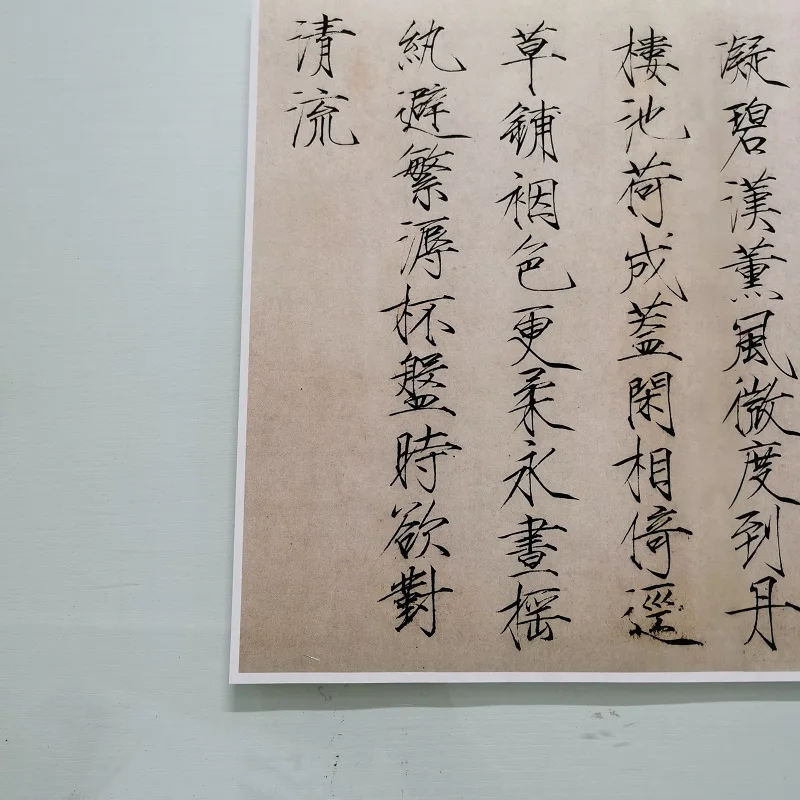 凝碧漢薰風微度到丹
樓池荷成蓋閑相倚逕
草鋪裀色更柔永晝摇
紈避繁溽杯盤時欲對
清流